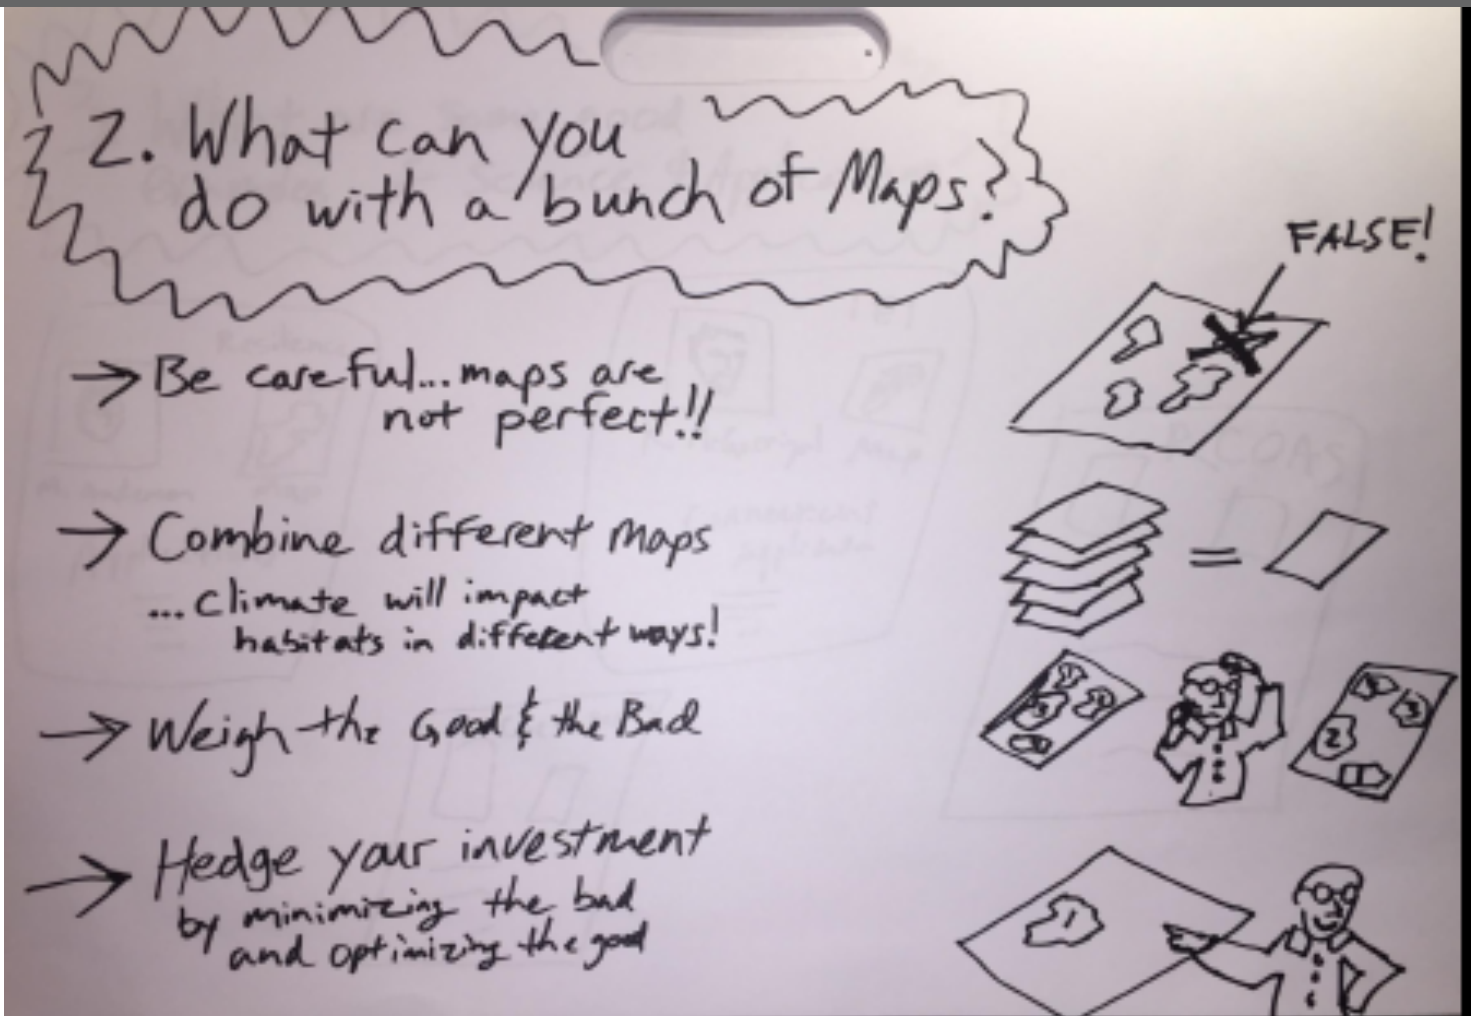 2. What can you
do with a bunch of Maps?
FALSE!
→ Be careful... maps are
not perfect!!
→ Combine different Maps
... climate will impact
habitats in different ways!
=
→ Weigh the Good & the Bad
2
3
→ Hedge your investment
by minimizing the bad
and optimizing the good
1